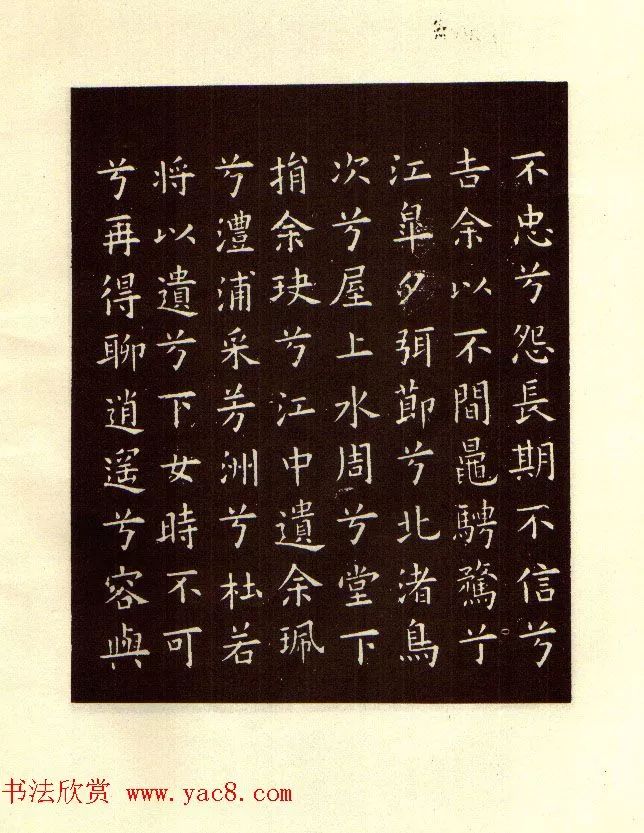 不忠兮怨長期不信兮
告余以不間鼂騁騖
江皐夕弭節兮北渚鳥
次兮屋上水周兮堂下
捐余玦兮江中遺余珮
兮澧浦采芳洲兮杜若
将以遺兮下女時不可
兮再得聊逍遥兮容與
书法欣赏 www.yac8.com